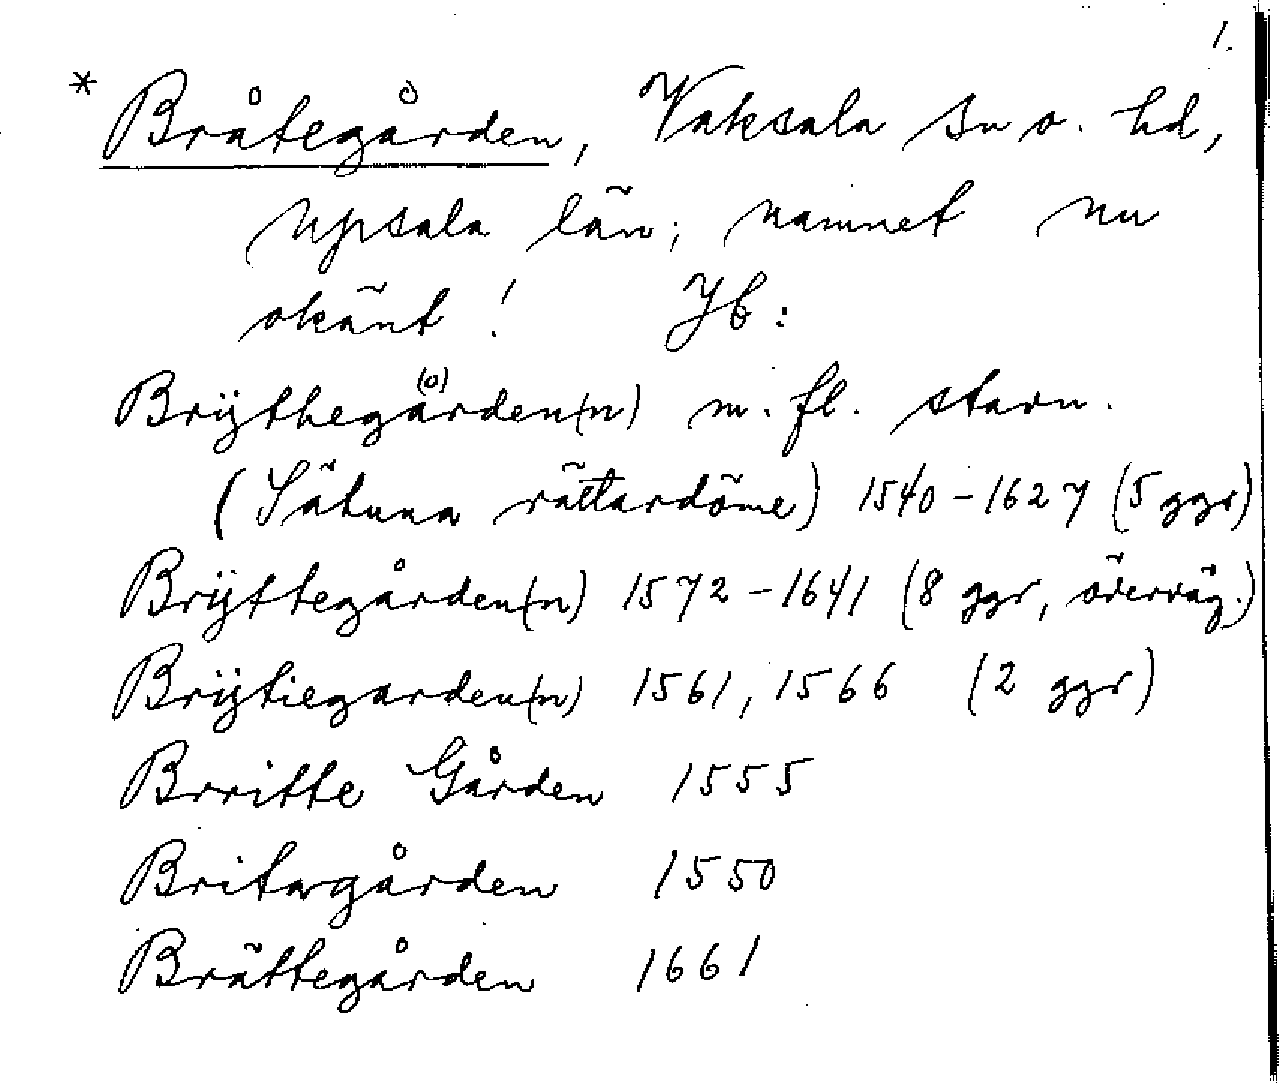 1.
* Bråtegården, Vaksala sn o. hd,
Upsala län; namnet nu
okänt! Jb:
Brÿthegå(o)rden(n) m. fl. stavn.
(Sätuna rättardöme) 1540-1627 (5 ggr)
Brÿttegården(n) 1572-1641 (8 ggr, överväg.)
Brÿtiegarden(n) 1561, 1566 (2 ggr)
Brritte Gården 1555
Britagården 1550
Brättegården 1661